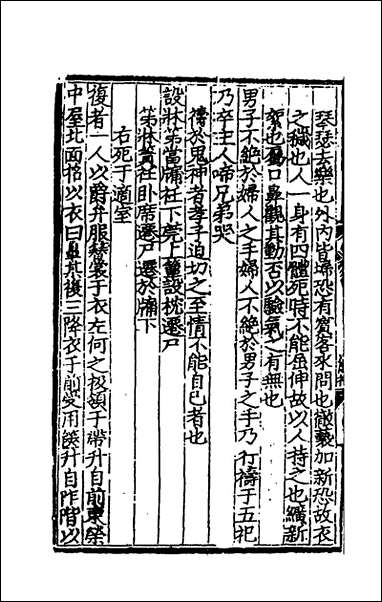 琴瑟去樂也外內皆埽恐有賓客來問也徹褻加新恐故衣
之穢也人一身有四體死時不能屈伸故以人持之也纊新
絮也屬口鼻觀其動否以驗氣之有無也
男子不絕於婦人之手婦人不絕於男子之手乃行禱于五祀
乃卒主人啼兄弟哭
禱於鬼神者孝子迫切之至情不能自已者也
設牀笫當牖衽下莞上簟設枕遷尸
笫牀簀衽臥席遷尸遷於牖下
右死于適室
復者一人以爵弁服簪裳于衣左何之扱領于帶升自前東榮
中屋北面招以衣曰臯某復三降衣于前受用篋升自阼階以